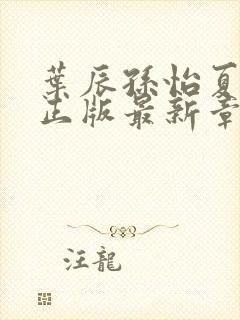 葉辰孫怡夏
正版最新章
汪龍